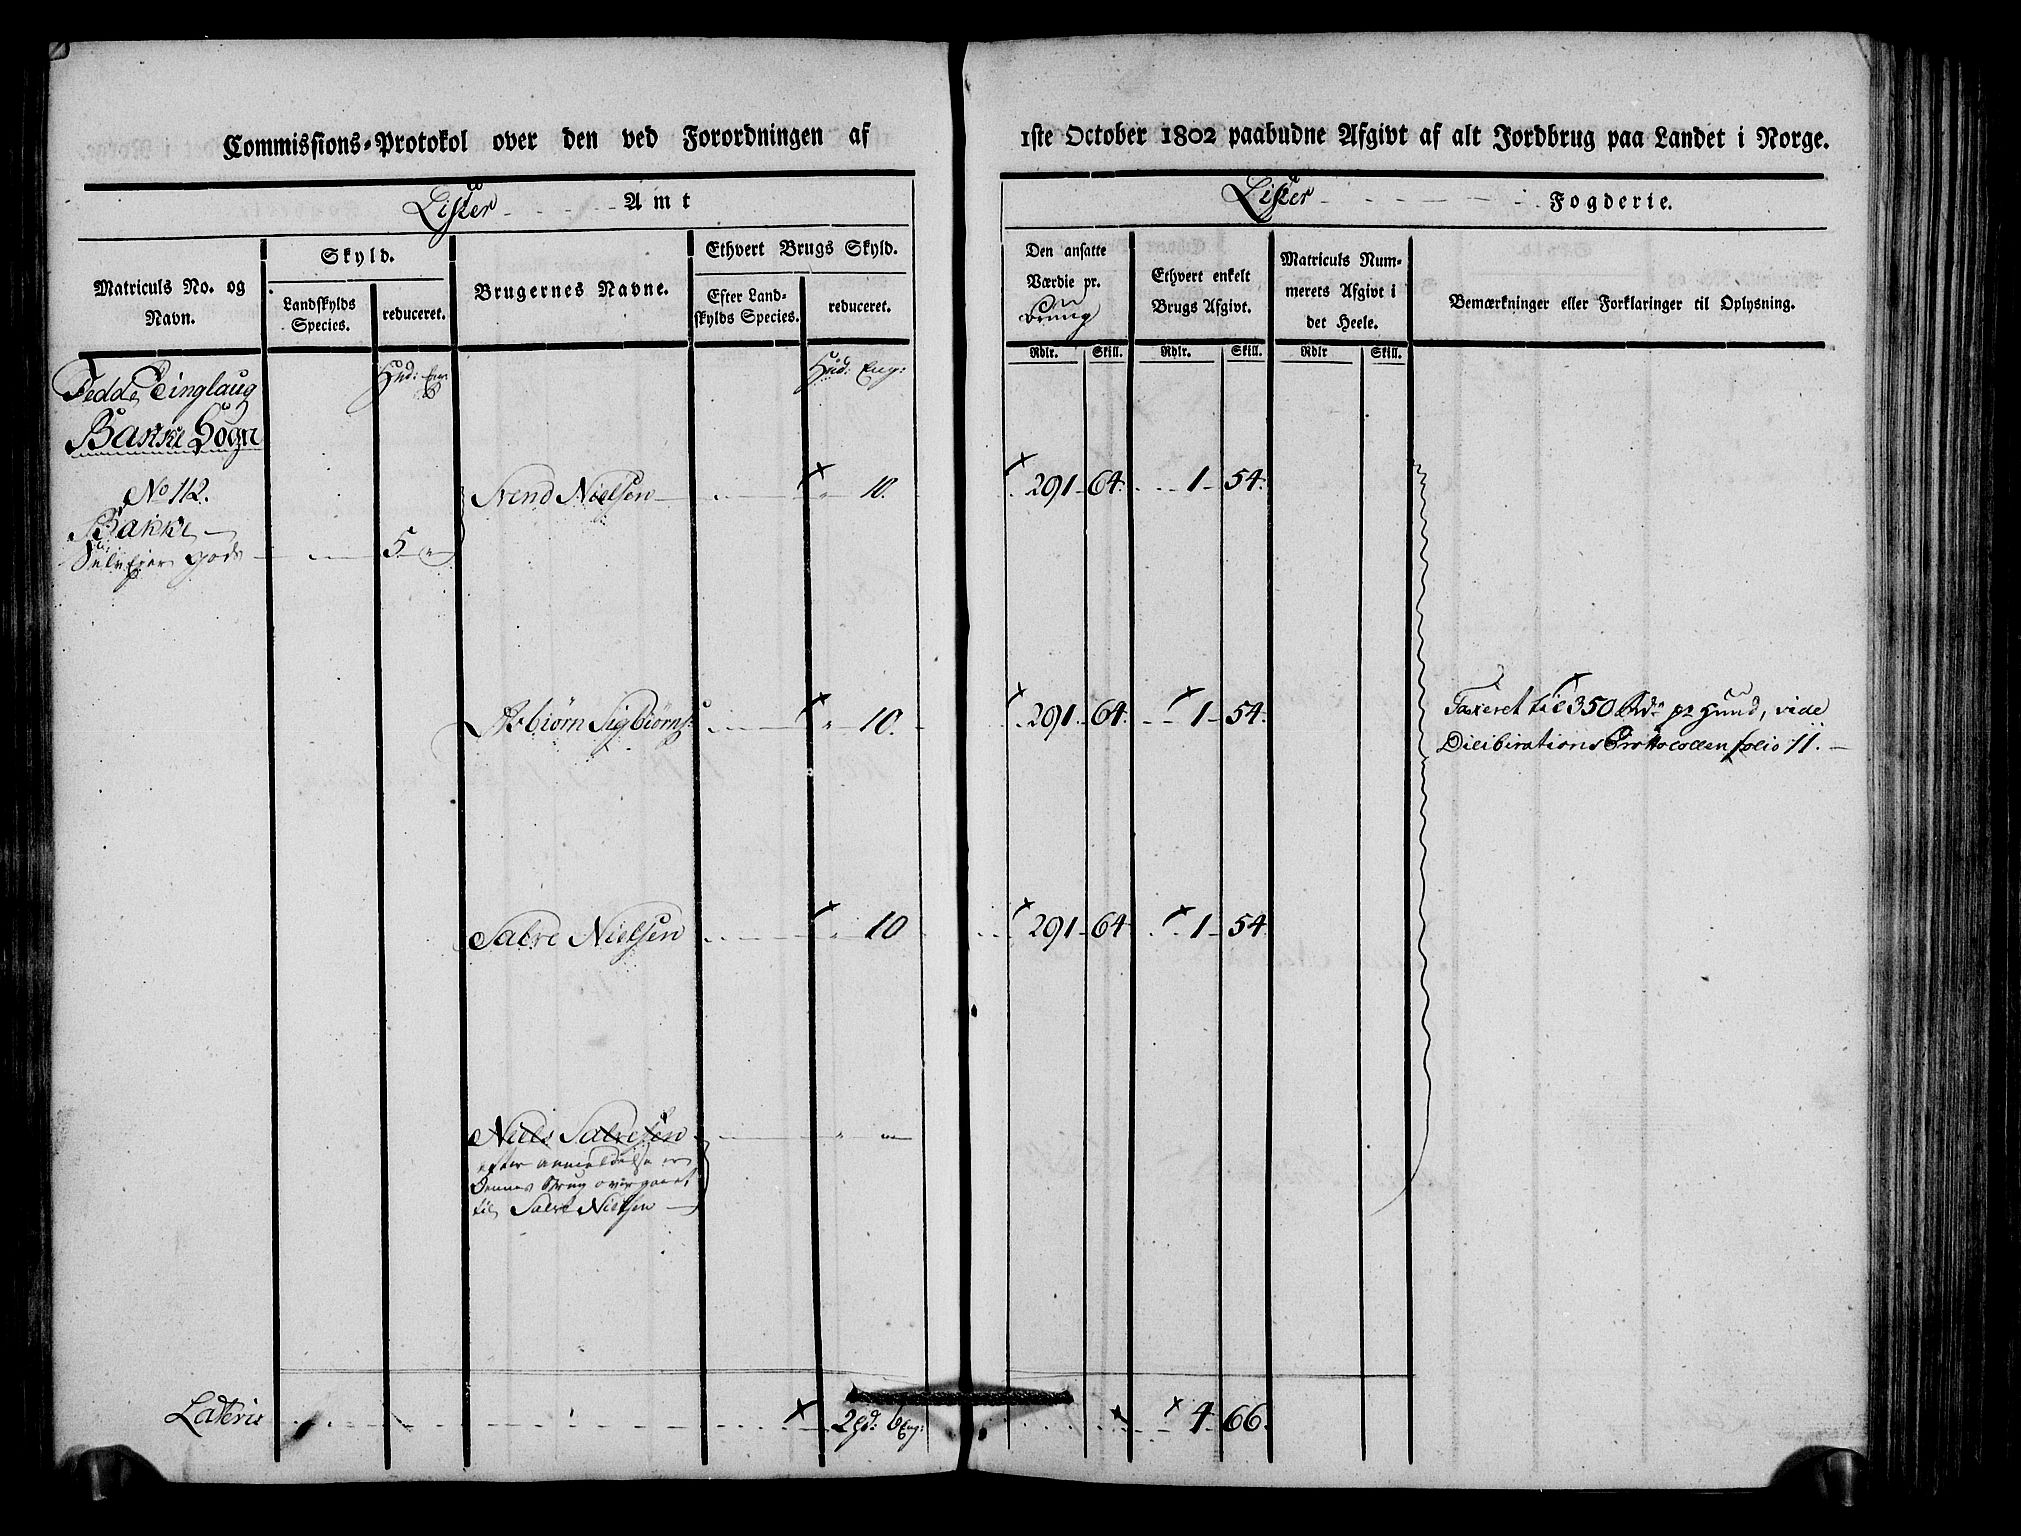 Commissions-Protokol over den ved Forordningen af
1ste October 1802 paabudne Afgivt af alt Jordbrug paa Landet i Norge.
Lister Amt
Lister Fogderie.
Matriculs No. og
Navn.
Skyld.
Landskylds
Species.
reduceret.
Brugernes Navne.
Ethvert Brugs Skyld.
Efter Land-
skylds Species.
reduceret.
Den ansatte
Værdie pr.
Brug
Ethvert enkelt
Brugs Afgivt.
Matriculs Num-
merets Afgivt i
det Heele.
Bemærkninger eller Forklaringer til Oplysning.
Rdlr. Skill. Rdlr. Skill. Rdlr Skill.
Fedde Tinglaug Hud: Eng: Hud: Eng:
Bakke Sogn
No 112. Svend Nielsen " 10. 291 64. 1 54.
Bakke
Selveier gods 5 "
Asbiørn Sigbiørns: " 10. 291. 64. 1 54.
Taxeret til 350 Rdr pr Huud, vide
Dilibirations Prottocollen folio 11.
Salve Nielsen " 10 291 64 1 54.
Niels Salvesen " "
efter anmeldelse er
Dennes Brug overgaaet
til Salve Nielsen
Lateris 2 hd: 6 Eng: 4 66.